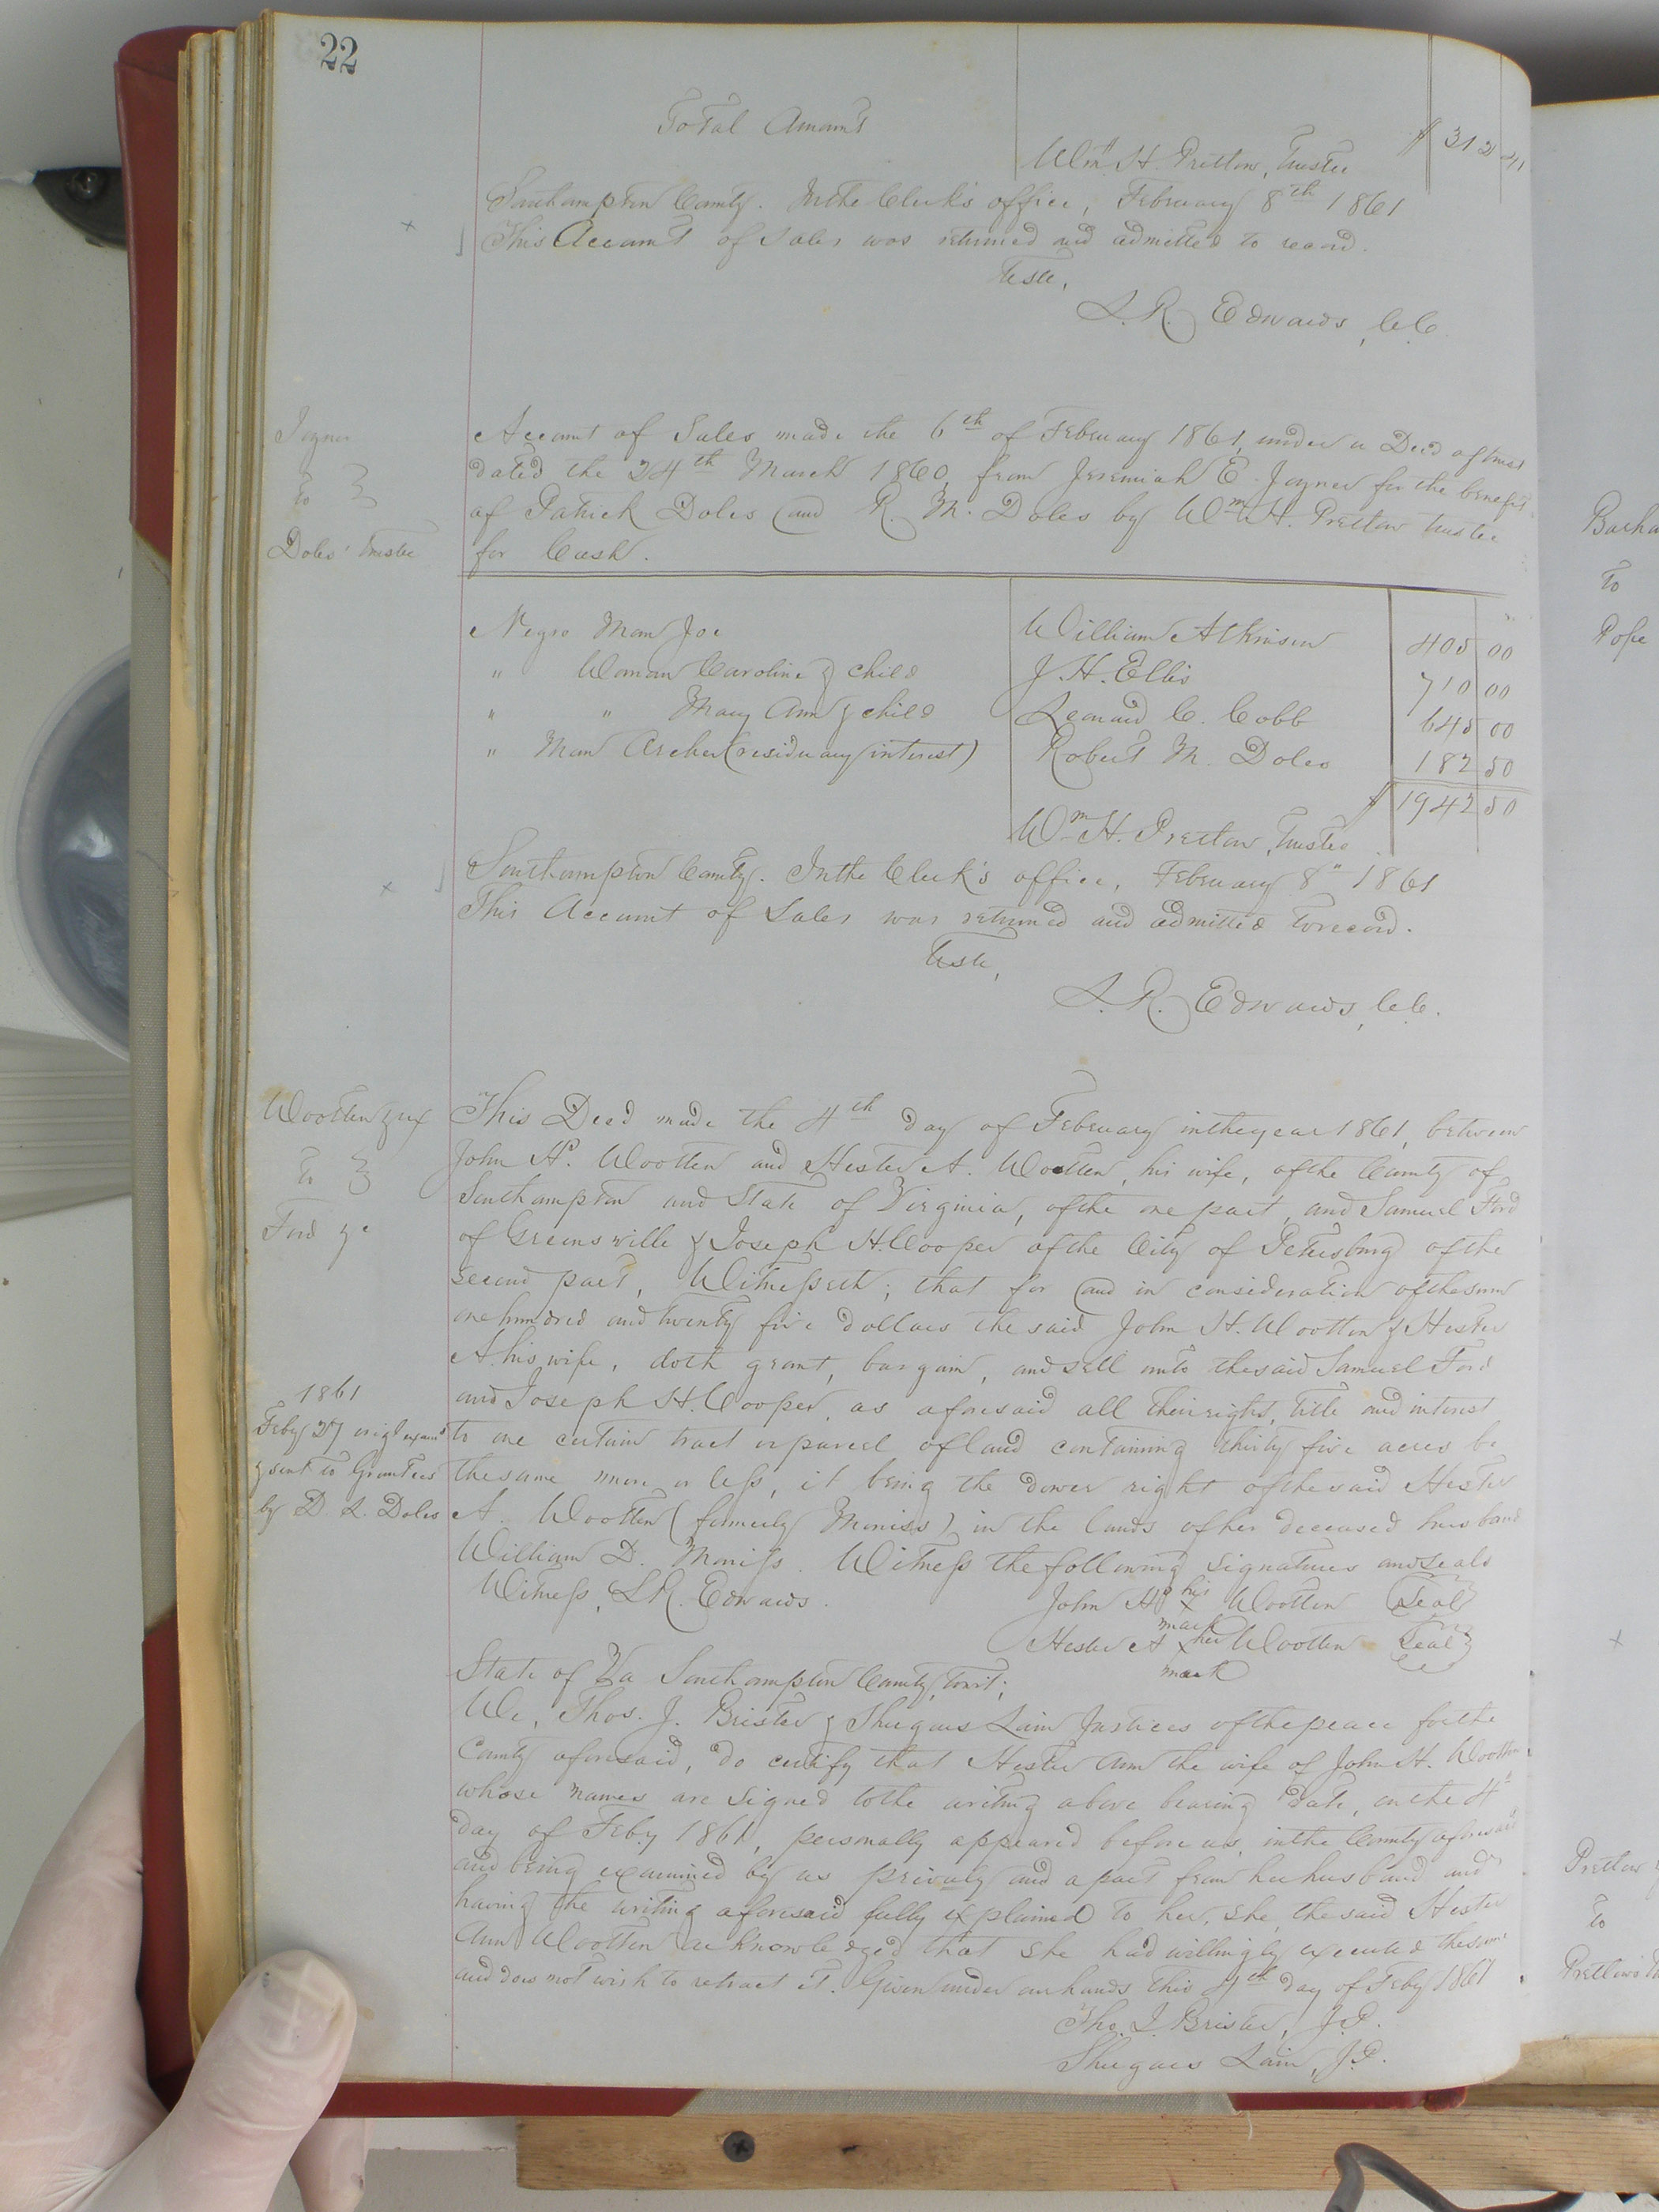 22
Total Amount $ 312 41
Wm. H. Pretlow, Trustee
Southampton County. In the Clerk's office, February 8th 1861
This Account of Sales was returned and admitted to record.
Teste,
L. R. Edwards, C.C.
Joyner
To
Doles' Trustee
Account of Sales made the 6th of February 1861, under a Deed of trust
dated the 24th March 1860, from Jeremiah E. Joyner for the benefit
of Patrick Doles and R. M. Doles by Wm. H. Pretlow trustee
for Cash.
Negro Man Joe William Atkinson 405 00
" Woman Caroline & child J. H. Ellis 710 00
" " Mary Ann & child Leonard C. Cobb 645 00
" Man Archer (residuary interest) Robert M. Doles 182 50
$ 1942 50
Wm. H. Pretlow, Trustee
Southampton County. In the Clerk's office, February 8" 1861
This Account of Sales was returned and admitted to record.
Teste,
L. R. Edwards, C.C.
Wootten & ux
To
Ford &c
This Deed made the 4th day of February in the year 1861, between
John H. Wootten and Hester A. Wootten, his wife, of the County of
Southampton and State of Virginia, of the one part, and Samuel Ford
of Greensville & Joseph H. Cooper of the City of Petersburg of the
second part, Witnesseth; that for and in consideration of the sum
one hundred and twenty five dollars the said John H. Wootten & Hester
A. his wife, doth grant, bargain, and sell unto the said Samuel Ford
and Joseph H. Cooper, as aforesaid all their right, title and interest
to one certain tract or parcel of land containing thirty five acres be
the same more or less, it being the dower right of the said Hester
A. Wootten (formerly Moniss) in the lands of her deceased husband
William D. Moniss. Witness the following signatures and seals
1861
Feby 27 origl examd
& sent to Grantees
by D. L. Doles
Witness, L R. Edwards. John H. his x Wootten Seal
mark
Hester A x her Wootten Seal
mark
State of Va Southampton County, to wit;
We, Thos. J. Brister & Shugars Lain Justices of the peace for the
County aforesaid, do certify that Hester Ann the wife of John H. Wootten
whose names are signed to the writing above bearing date, on the 4"
day of Feby 1861, personally appeared before us, in the County aforesaid
and being examined by us privaly and apart from her husband and
having the writing aforesaid fully explained to her, she, the said Hester
Ann Wootten acknowledged that she had willingly executed the same
and does not wish to retract it. Given under our hands this 4th day of Feby 1861
Tho. J. Brister, J.P.
Shugars Lain, J.P.
To
Pope
Pretlow
To